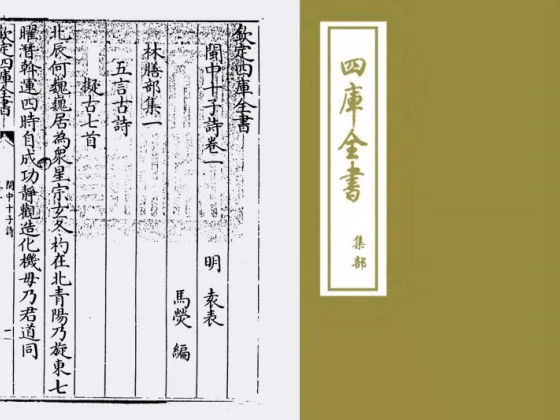 欽定四庫全書
閩中十子詩卷一
明 袁表
馬熒 編
林膳部集一
五言古詩
擬古七首
北辰何巍巍居為衆星宗玄冬杓在北青陽乃旋東七
曜潛斡運四時自成功靜觀造化機毋乃君道同
欽定四庫全書
閩中十子詩
一
四庫全書
集部